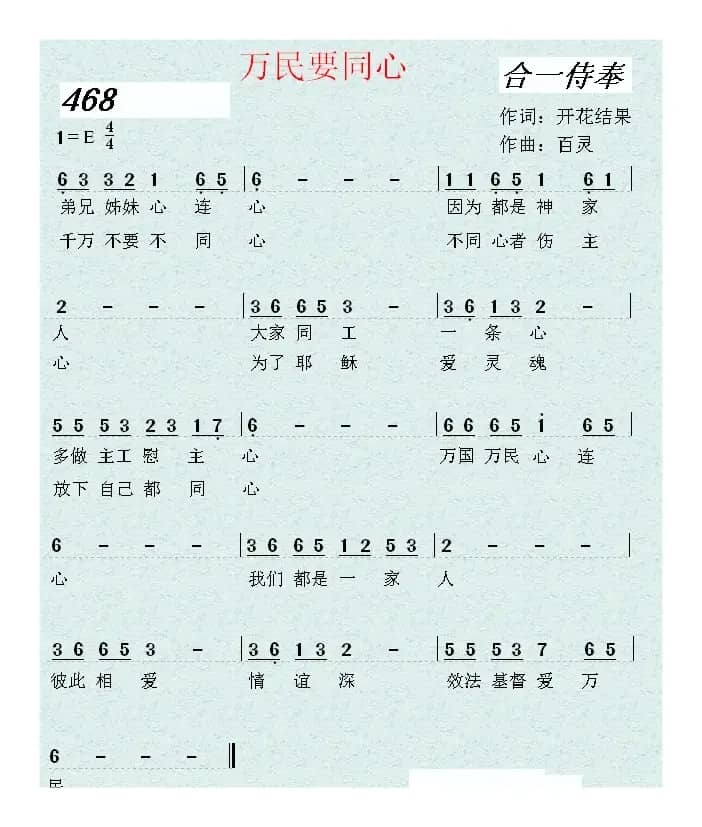 万民要同心
合一侍奉
468
1=E 4/4
作词：开花结果
作曲：百灵
6 3 3 2 1 6 5 | 6 - - - | 1 1 6 5 1 6 1 |
弟兄 姊妹 心 连 心 因为 都是 神 家
千万 不要 不 同 心 不同 心者 伤 主
2 - - - | 3 6 6 5 3 - | 3 6 1 3 2 - |
人 大家 同 工 一 条 心
心 为了 耶 稣 爱 灵 魂
5 5 5 3 2 3 1 7 | 6 - - - | 6 6 6 5 1 6 5 |
多做 主工 慰 主 心 万国 万民 心 连
放下 自己 都 同 心
6 - - - | 3 6 6 5 1 2 5 3 | 2 - - - |
心 我们 都是 一 家 人
3 6 6 5 3 - | 3 6 1 3 2 - | 5 5 5 3 7 6 5 |
彼此 相 爱 情 谊 深 效法 基督 爱 万
6 - - - ‖
民